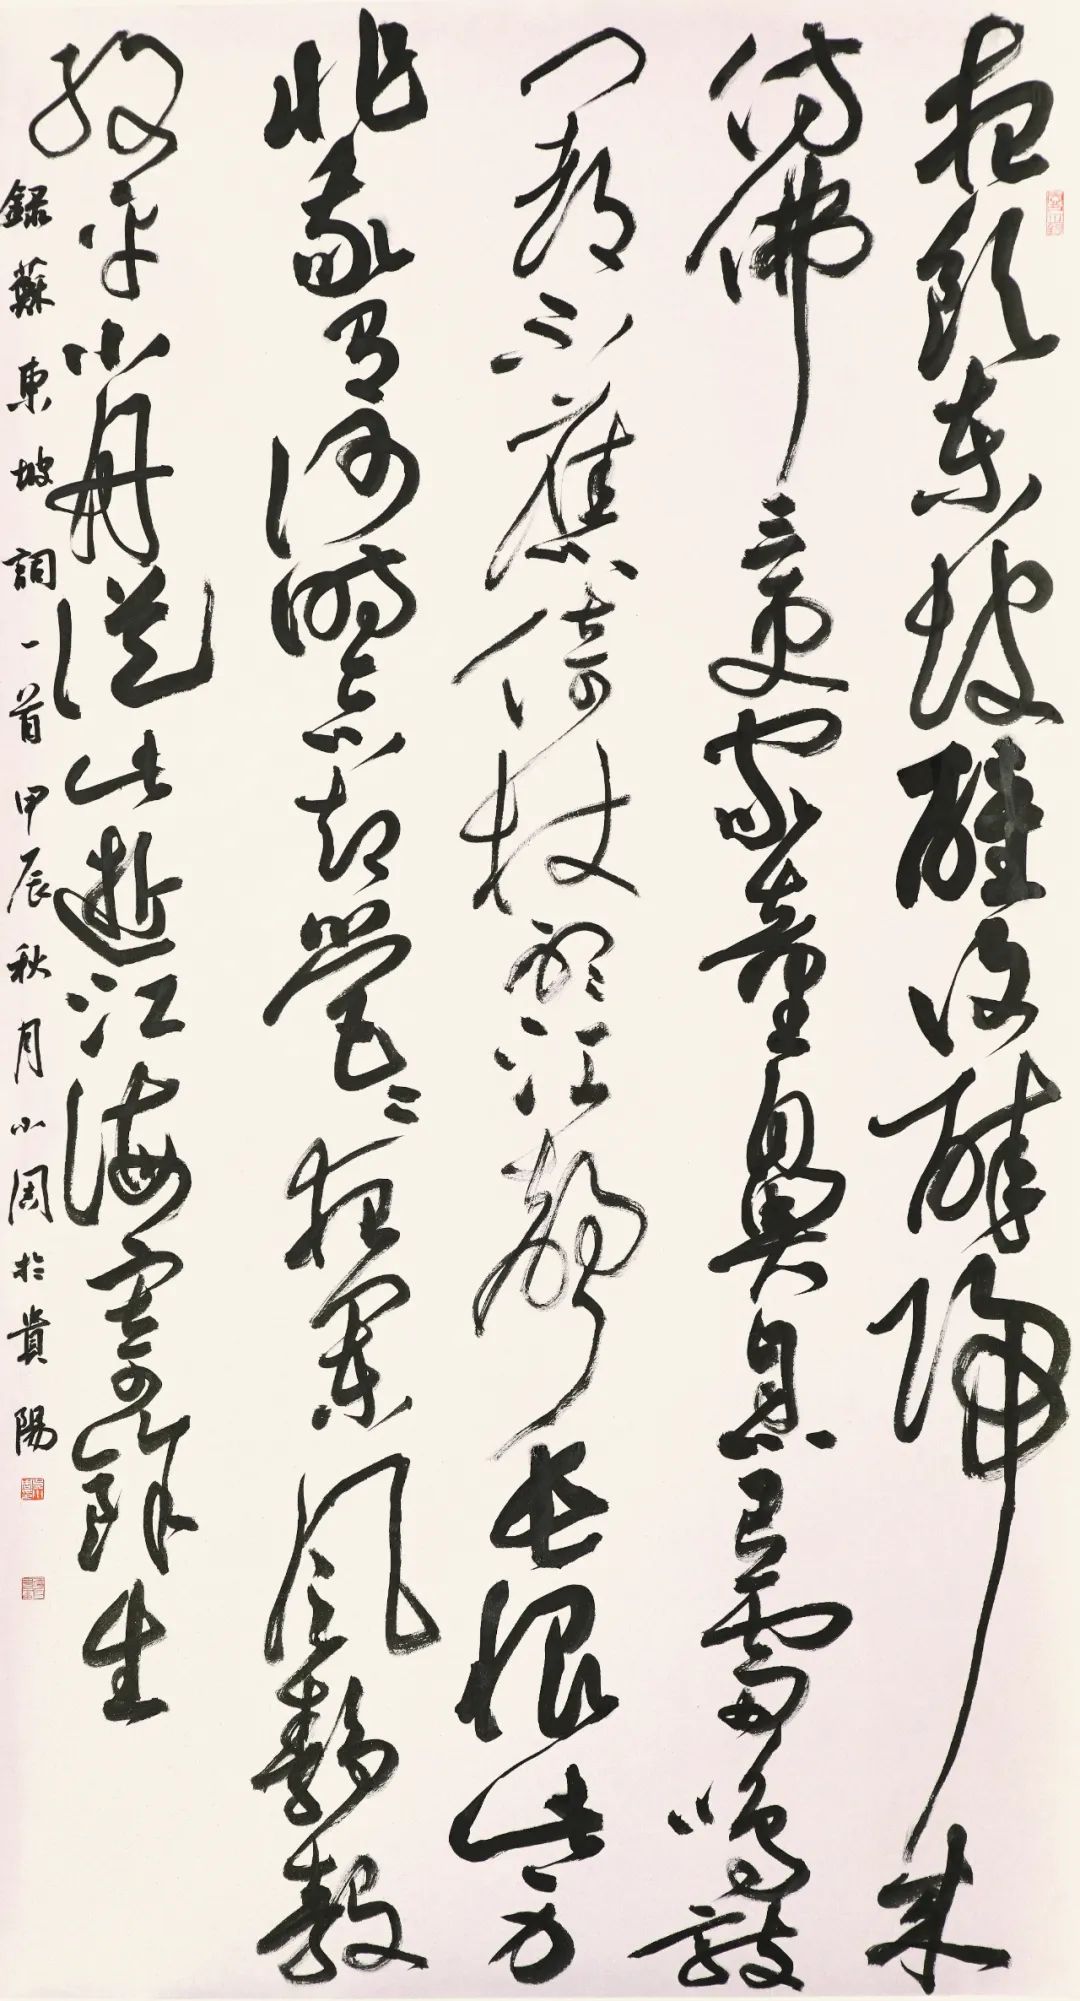 夜飲東坡醒復醉歸來
仿佛三更家童鼻息已雷鳴敲
門都不應倚杖聽江聲長恨此身
非我有何時忘却營〻夜闌風靜縠
紋平小舟從此逝江海寄餘生
録蘇東坡詞一首甲辰秋月小周於貴陽